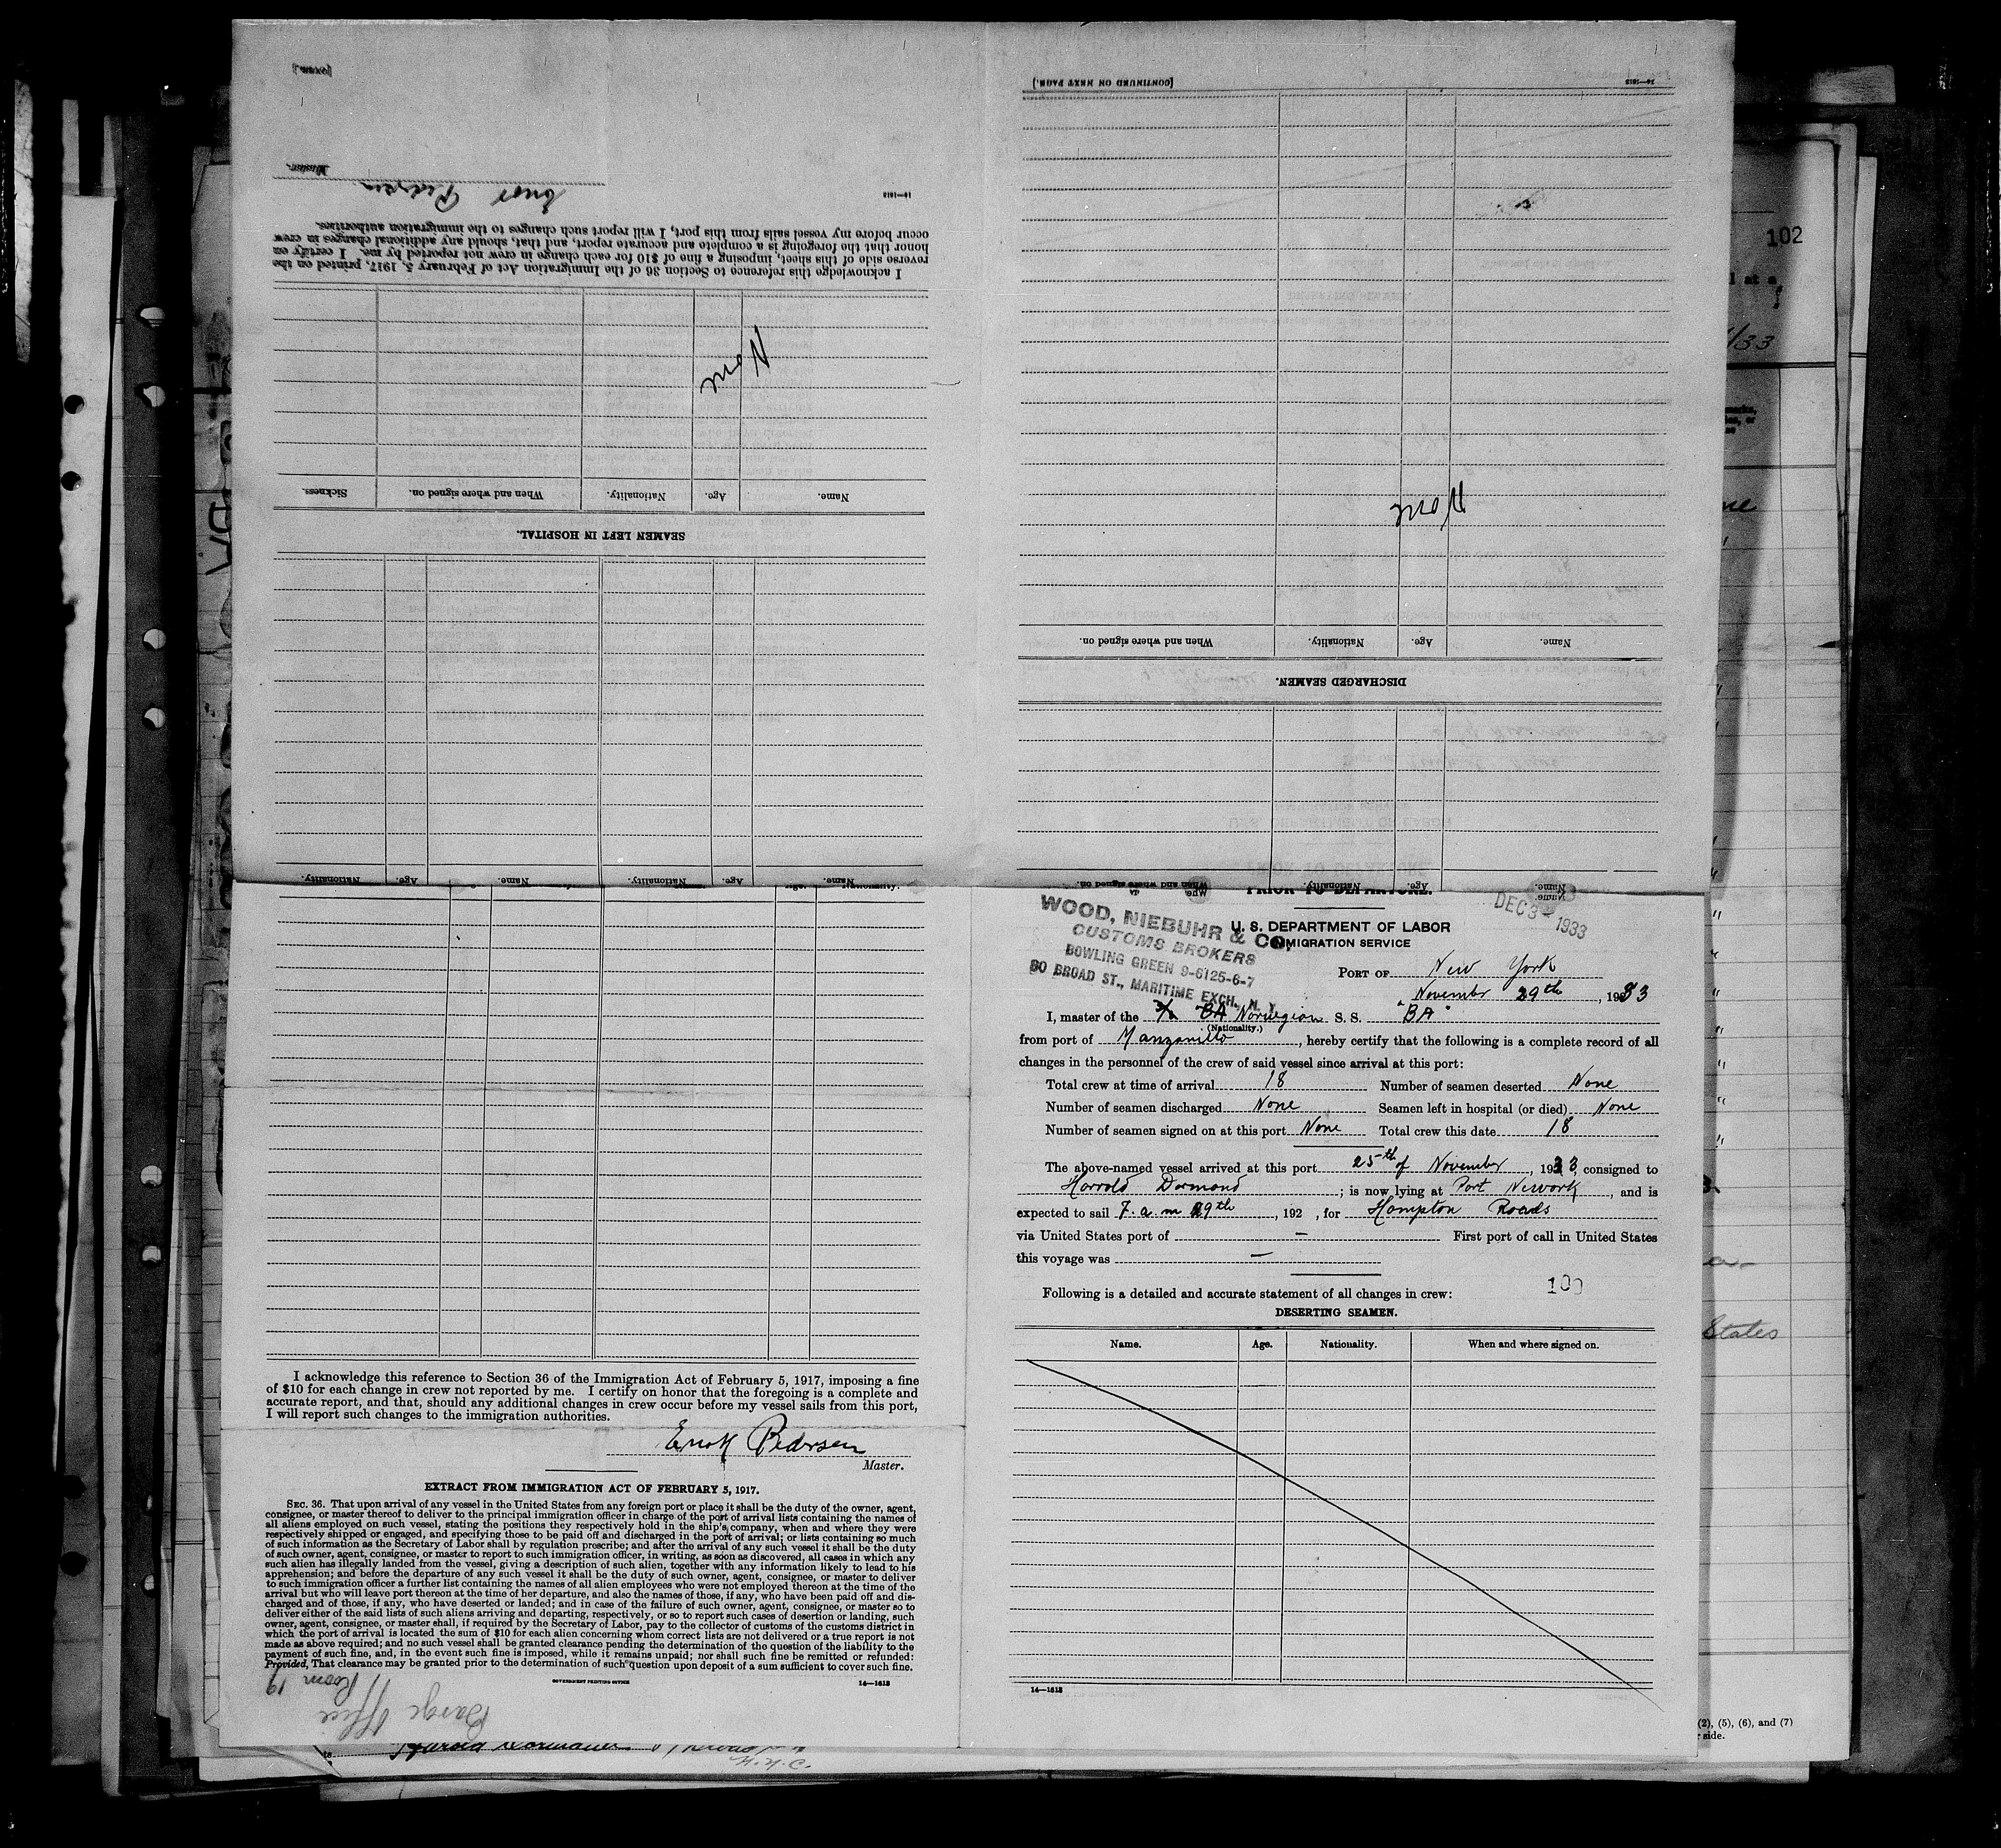 [OVER.]
Master.
Enok Pedersen
14—1613
I acknowledge this reference to Section 36 of the Immigration Act of February 5, 1917, printed on the
reverse side of this sheet, imposing a fine of $10 for each change in crew not reported by me. I certify on
honor that the foregoing is a complete and accurate report, and that, should any additional changes in crew
occur before my vessel sails from this port, I will report such changes to the immigration authorities.
None
Name. Age. Nationality. When and where signed on. Sickness.
SEAMEN LEFT IN HOSPITAL.
Name. Age. Nationality. Name. Age. Nationality.
[CONTINUED ON NEXT PAGE.]
14—1613
None
Name. Age. Nationality. When and where signed on.
DISCHARGED SEAMEN.
Name. Age. Nationality. When and where signed on.
102
l at a
/33
PRIOR TO DEPARTURE.
DEC 3 - 1933
WOOD, NIEBUHR & CO.
CUSTOMS BROKERS
BOWLING GREEN 9-6125-6-7
80 BROAD ST., MARITIME EXCH. N. Y.
U. S. DEPARTMENT OF LABOR
IMMIGRATION SERVICE
PORT OF New York
November 29th, 1933
I, master of the Norwegian S. S. "BA"
(Nationality.)
from port of Manzanillo, hereby certify that the following is a complete record of all
changes in the personnel of the crew of said vessel since arrival at this port:
Total crew at time of arrival 18 Number of seamen deserted None
Number of seamen discharged None Seamen left in hospital (or died) None
Number of seamen signed on at this port None Total crew this date 18
The above-named vessel arrived at this port 25th of November, 1933, consigned to
Harrold Dormond; is now lying at Port Newark, and is
expected to sail 7. a. m 29th, 192 , for Hampton Roads
via United States port of — First port of call in United States
this voyage was —
Following is a detailed and accurate statement of all changes in crew:
100
DESERTING SEAMEN.
Name. Age. Nationality. When and where signed on.
14—1613
I acknowledge this reference to Section 36 of the Immigration Act of February 5, 1917, imposing a fine
of $10 for each change in crew not reported by me. I certify on honor that the foregoing is a complete and
accurate report, and that, should any additional changes in crew occur before my vessel sails from this port,
I will report such changes to the immigration authorities.
Enok Pedersen
Master.
EXTRACT FROM IMMIGRATION ACT OF FEBRUARY 5, 1917.
SEC. 36. That upon arrival of any vessel in the United States from any foreign port or place it shall be the duty of the owner, agent,
consignee, or master thereof to deliver to the principal immigration officer in charge of the port of arrival lists containing the names of
all aliens employed on such vessel, stating the positions they respectively hold in the ship's company, when and where they were
respectively shipped or engaged, and specifying those to be paid off and discharged in the port of arrival; or lists containing so much
of such information as the Secretary of Labor shall by regulation prescribe; and after the arrival of any such vessel it shall be the duty
of such owner, agent, consignee, or master to report to such immigration officer, in writing, as soon as discovered, all cases in which any
such alien has illegally landed from the vessel, giving a description of such alien, together with any information likely to lead to his
apprehension; and before the departure of any such vessel it shall be the duty of such owner, agent, consignee, or master to deliver
to such immigration officer a further list containing the names of all alien employees who were not employed thereon at the time of the
arrival but who will leave port thereon at the time of her departure, and also the names of those, if any, who have been paid off and dis-
charged and of those, if any, who have deserted or landed; and in case of the failure of such owner, agent, consignee, or master so to
deliver either of the said lists of such aliens arriving and departing, respectively, or so to report such cases of desertion or landing, such
owner, agent, consignee, or master shall, if required by the Secretary of Labor, pay to the collector of customs of the customs district in
which the port of arrival is located the sum of $10 for each alien concerning whom correct lists are not delivered or a true report is not
made as above required; and no such vessel shall be granted clearance pending the determination of the question of the liability to the
payment of such fine, and, in the event such fine is imposed, while it remains unpaid; nor shall such fine be remitted or refunded:
Provided, That clearance may be granted prior to the determination of such question upon deposit of a sum sufficient to cover such fine.
GOVERNMENT PRINTING OFFICE
14—1613
Barge Office
Room 19
N.Y.C.
States
(2), (5), (6), and (7)
side.